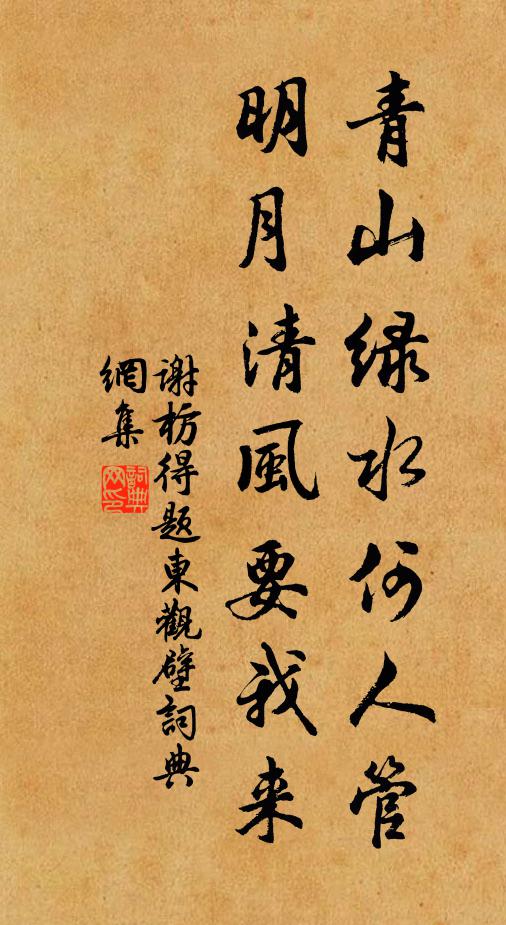 青山緑水何人管
明月清風要我来
谢枋得题東觀壁詞典
網集
詞典
网印